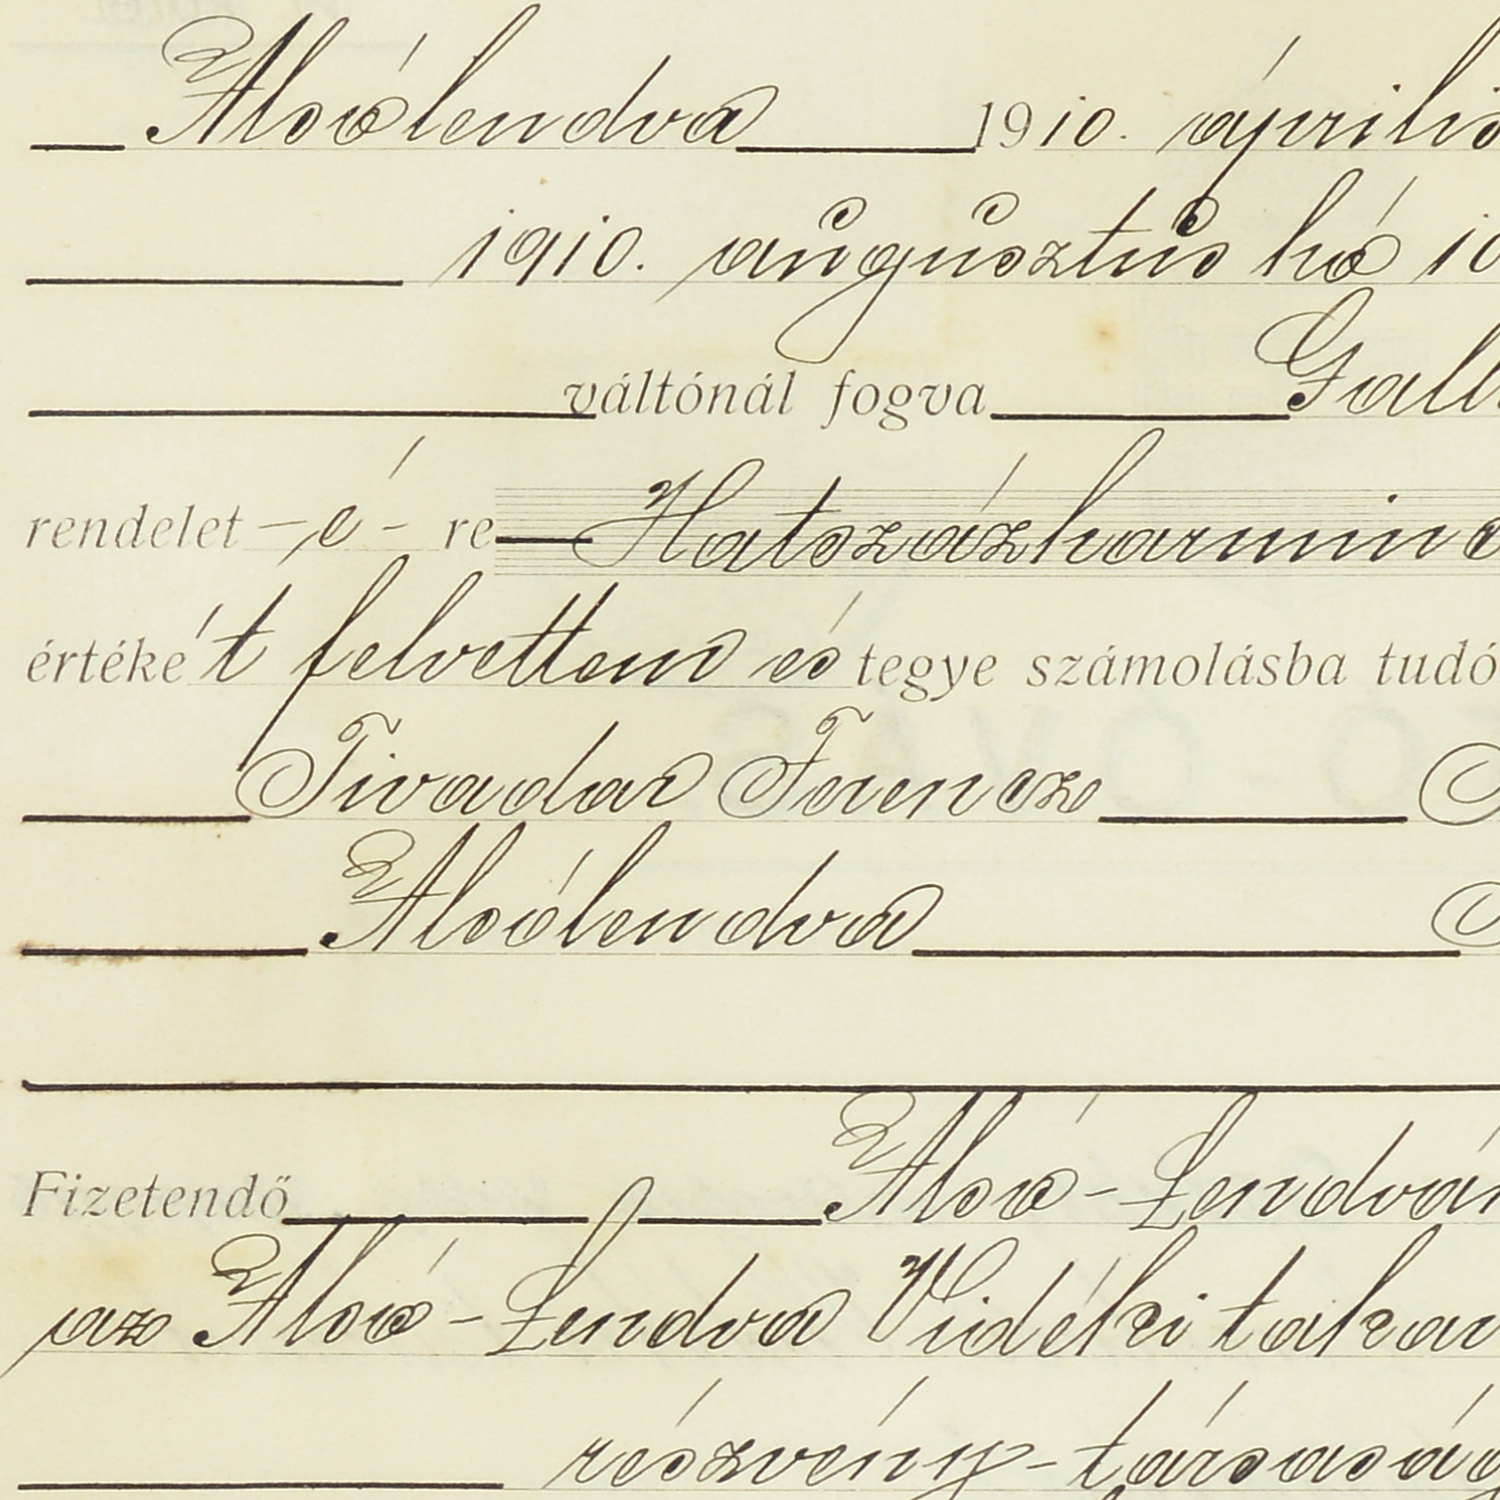 Alsólendva 1910. április
1910. augusztus hó 10
váltónál fogva Gall
rendelet-é-re Hatszázharminc
értéké't felvettem és tegye számolásba tudó
Tivadar Ferencz
Alsólendva
Fizetendő Alsó-Lendván
az Alsó-Lendva Vidéki takar
részvény-társaság